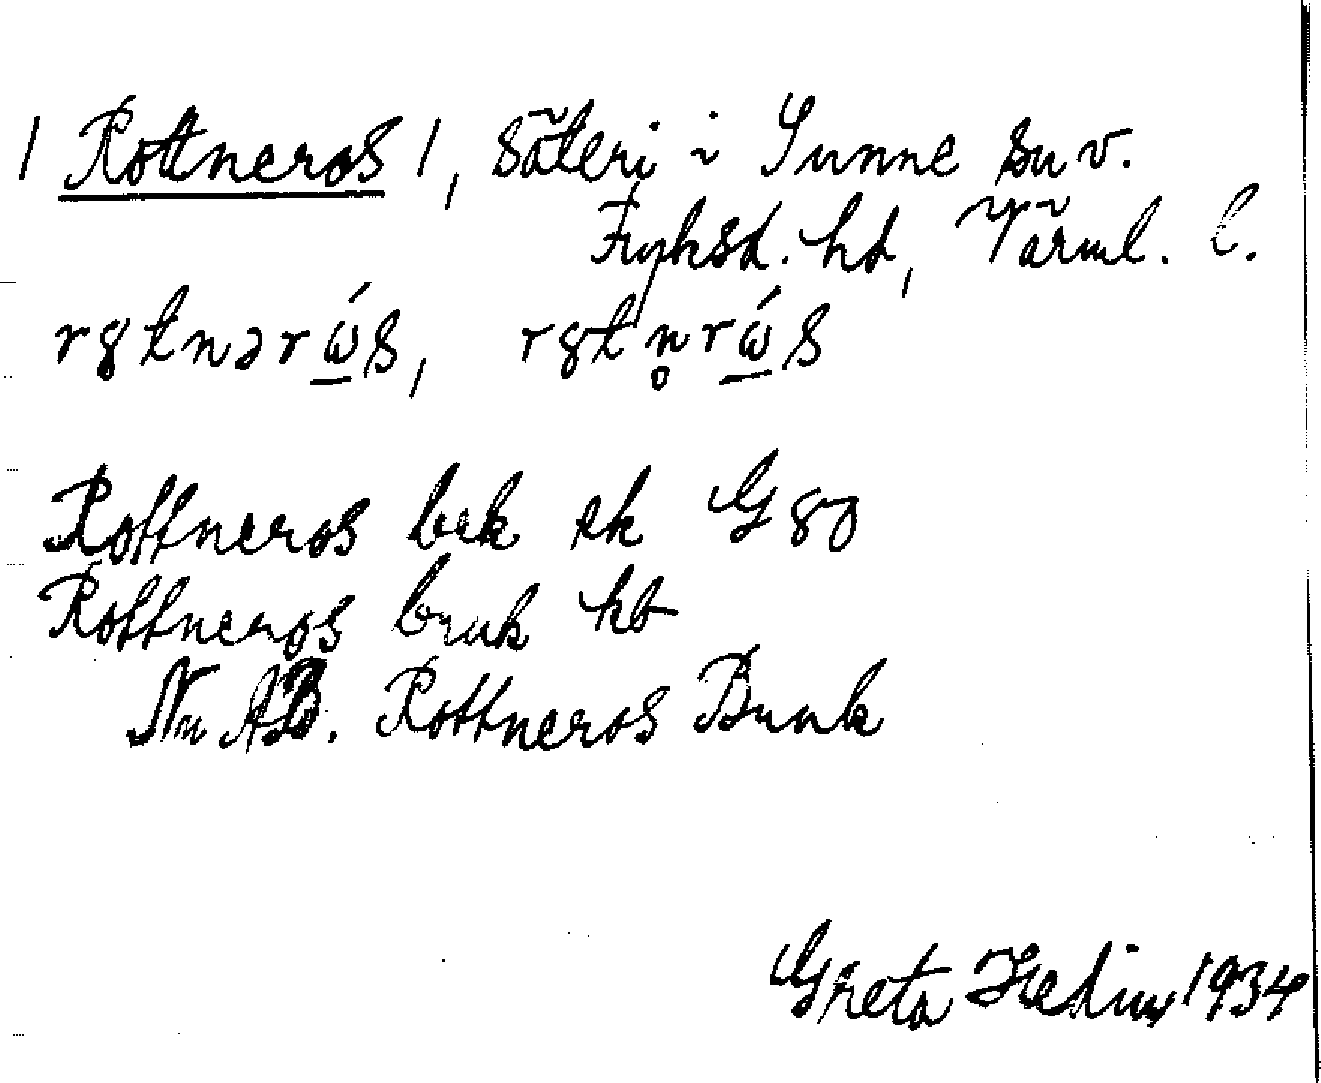 / Rottneros /, säteri i Sunne sn v.
Fryksd. hd, Värml. l.
rȣtnərώs, rȣtn̥rώs
Rottneros bek ek G 80
Rottneros bruk kb
Nu AB. Rottneros Bruk
Greta Hedin 1934